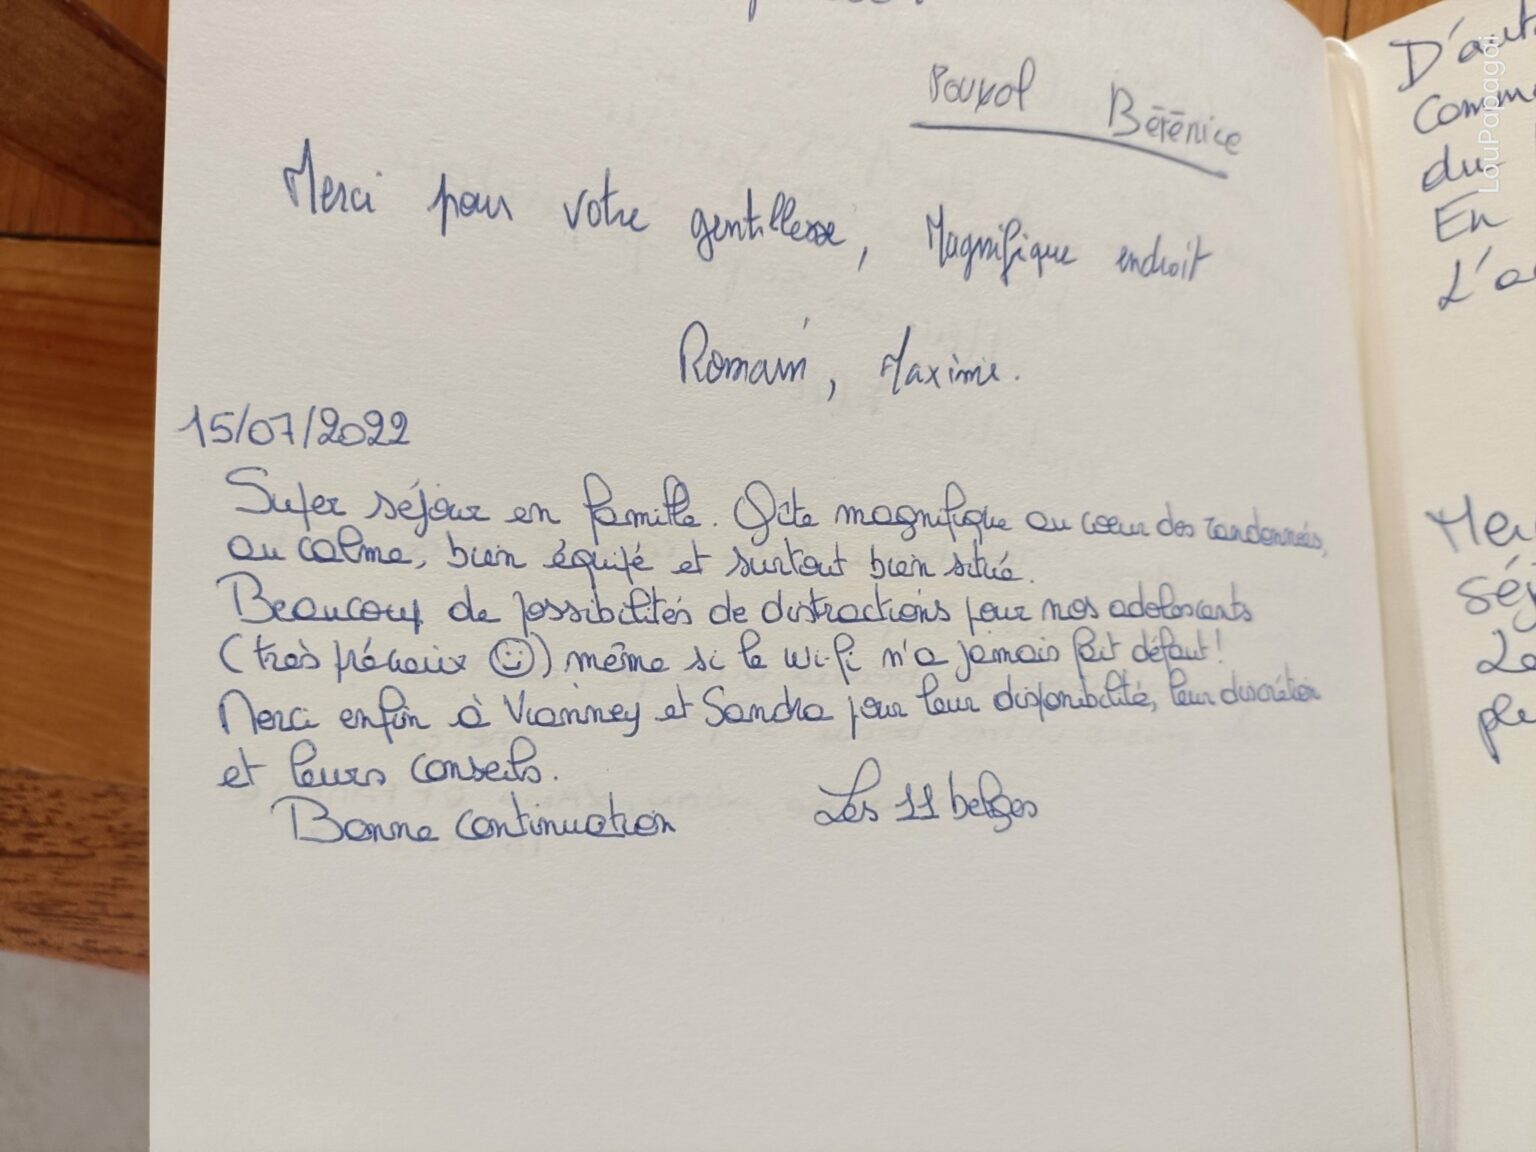 Pouxol Bérénice
Merci pour votre gentillesse, Magnifique endroit
Romain, Maxime.
15/07/2022
Super séjour en famille. Gîte magnifique au cœur des randonnées,
au calme, bien équipé et surtout bien situé.
Beaucoup de possibilités de distractions pour nos adolescents
(très précieux ☺) même si le wi-fi n'a jamais fait défaut!
Merci enfin à Vianney et Sandra pour leur disponibilité, leur discrétion
et leurs conseils.
Bonne continuation Les 11 belges
D'aut
Comme
du
En
L'a
Mer
séj
La
pl
LouPapagai